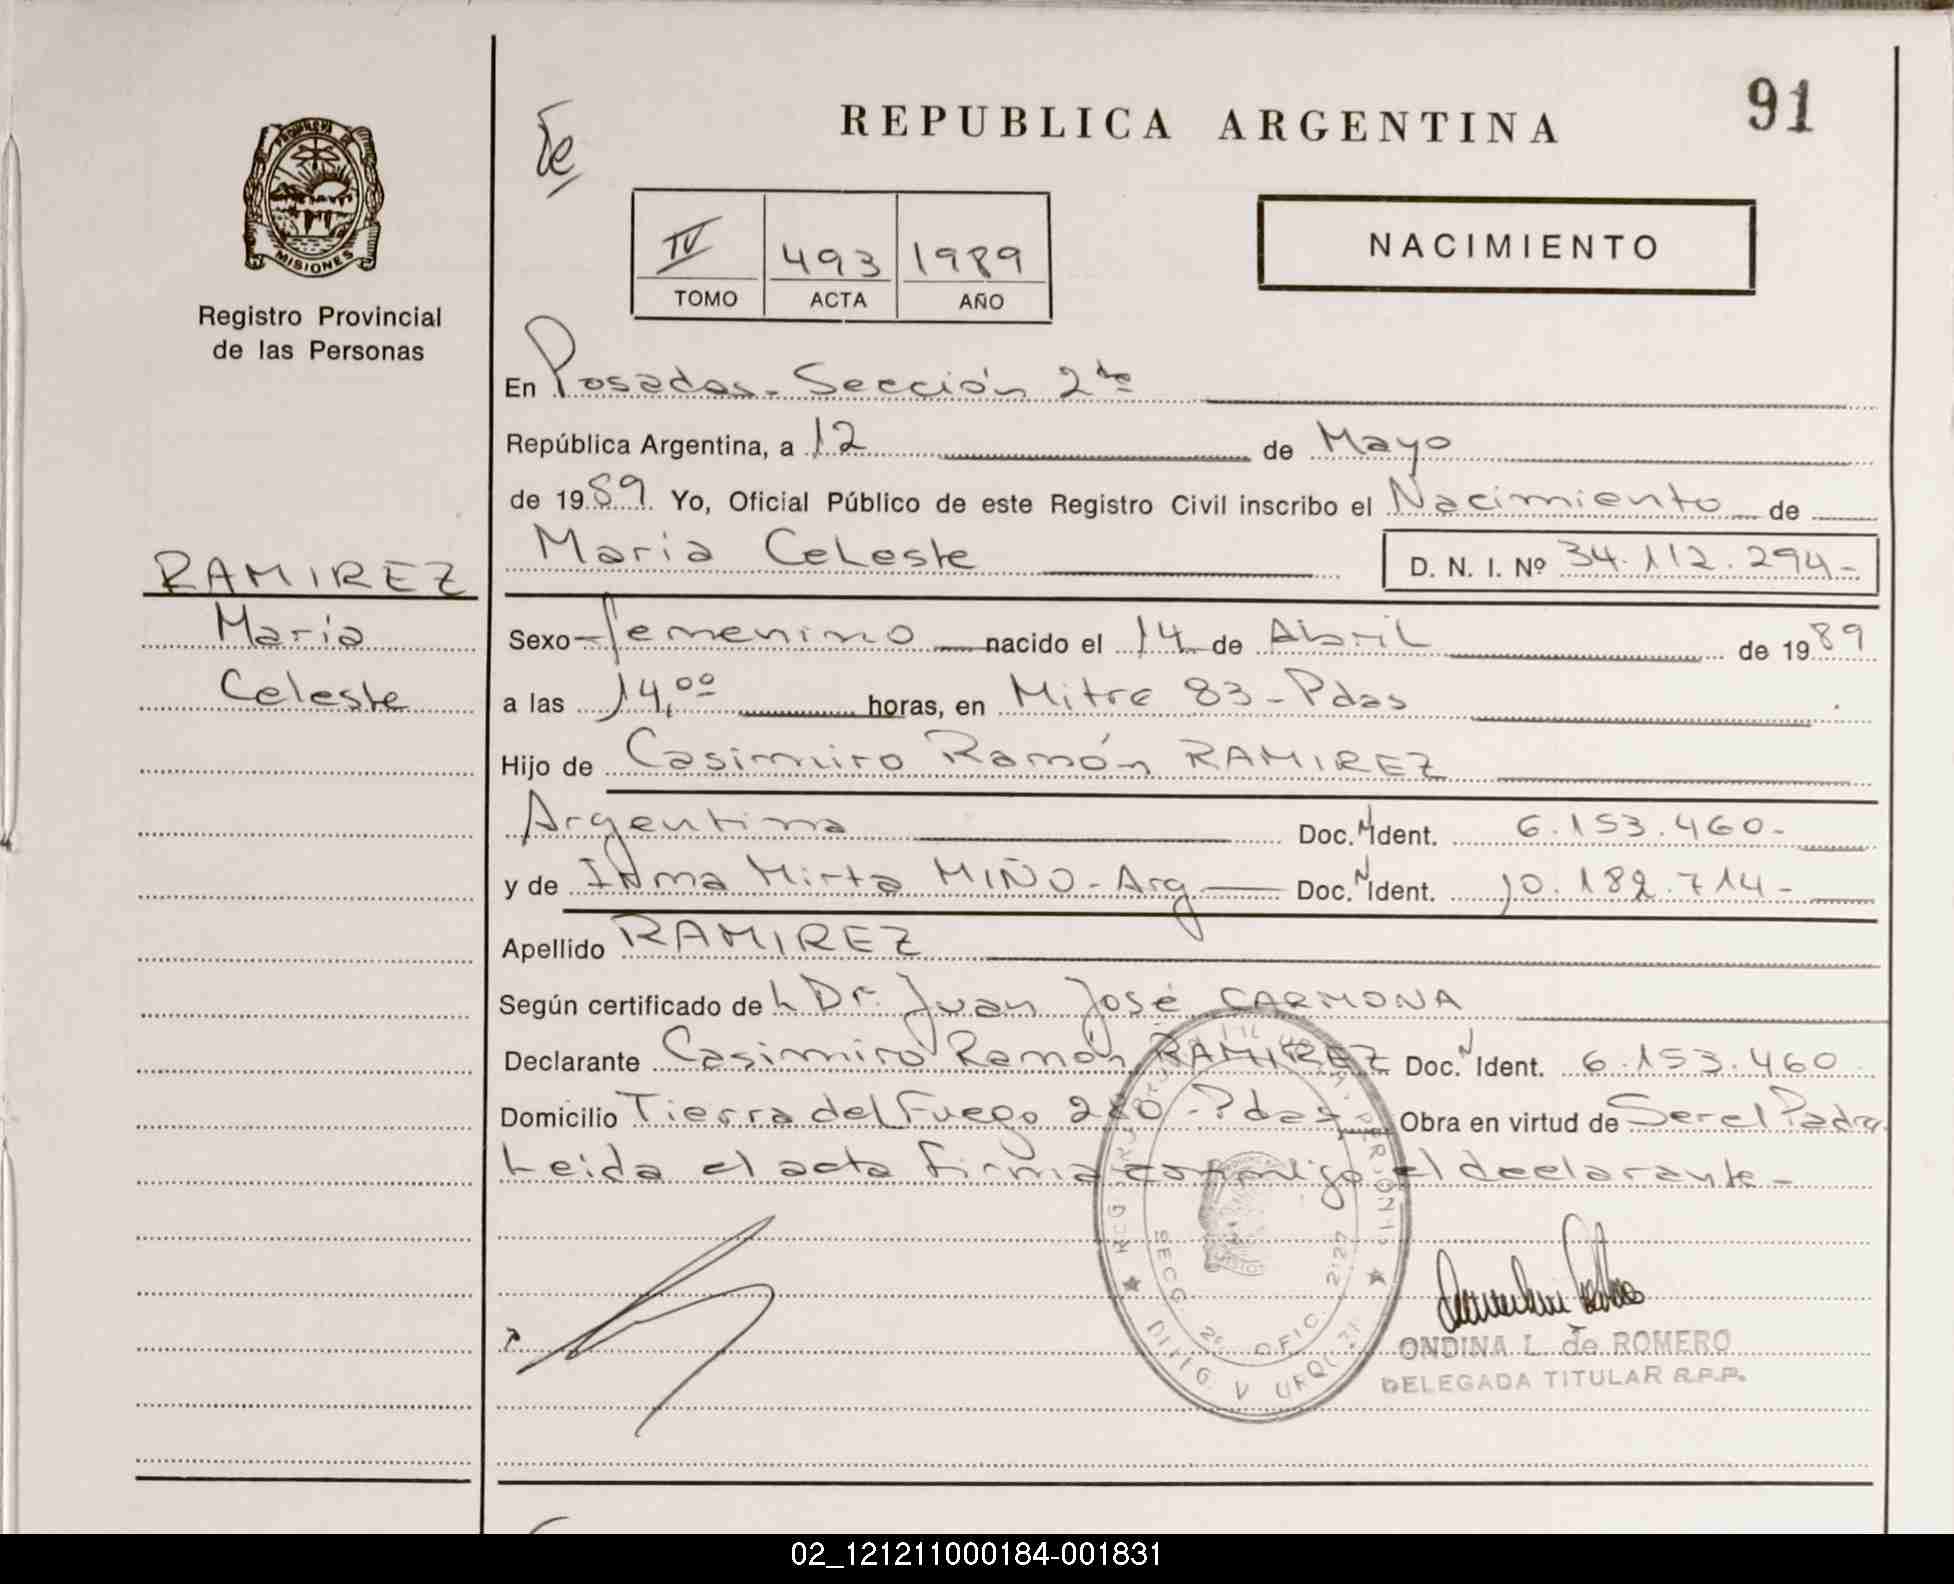 91
REPUBLICA ARGENTINA
NACIMIENTO
PROVINCIA DE
MISIONES
Registro Provincial
de las Personas
IV 493 1989
TOMO ACTA AÑO
RAMIREZ
María
Celeste
En Posadas - Sección 2da
República Argentina, a 12 de Mayo
de 1989 Yo, Oficial Público de este Registro Civil inscribo el Nacimiento de
María Celeste D. N. I. Nº 34.112.294-
Sexo femenino nacido el 14 de Abril de 1989
a las 14,00 horas, en Mitre 83 - Pdas
Hijo de Casimiro Ramón RAMIREZ
Argentina Doc. N Ident. 6.153.460-
y de Irma Mirta MIÑO - Arg Doc. N Ident. 10.182.714-
Apellido RAMIREZ
Según certificado de L Dr. Juan José CARMONA
Declarante Casimiro Ramón RAMIREZ Doc. N Ident. 6.153.460
Domicilio Tierra del Fuego 280 - Pdas Obra en virtud de Ser el Padre
Leida el acta firma conmigo el declarante -
SECC. 2 OFIC. 2127
ONDINA L. de ROMERO
DELEGADA TITULAR R.P.P.
02_121211000184-001831